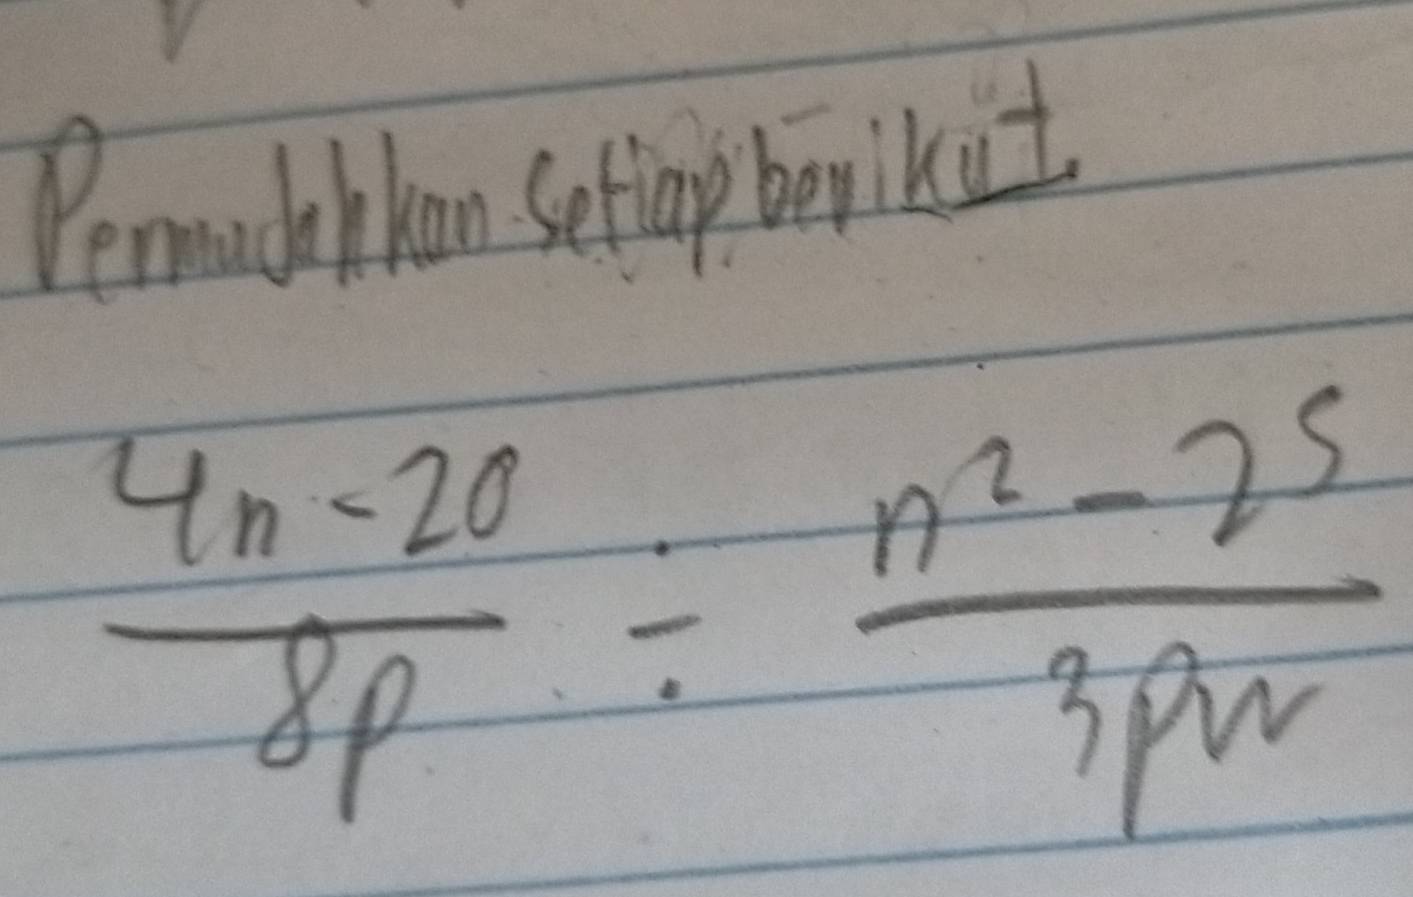 Permudahkan setiap berikut
4n - 20 / 8p ÷ n² - 25 / 3pw